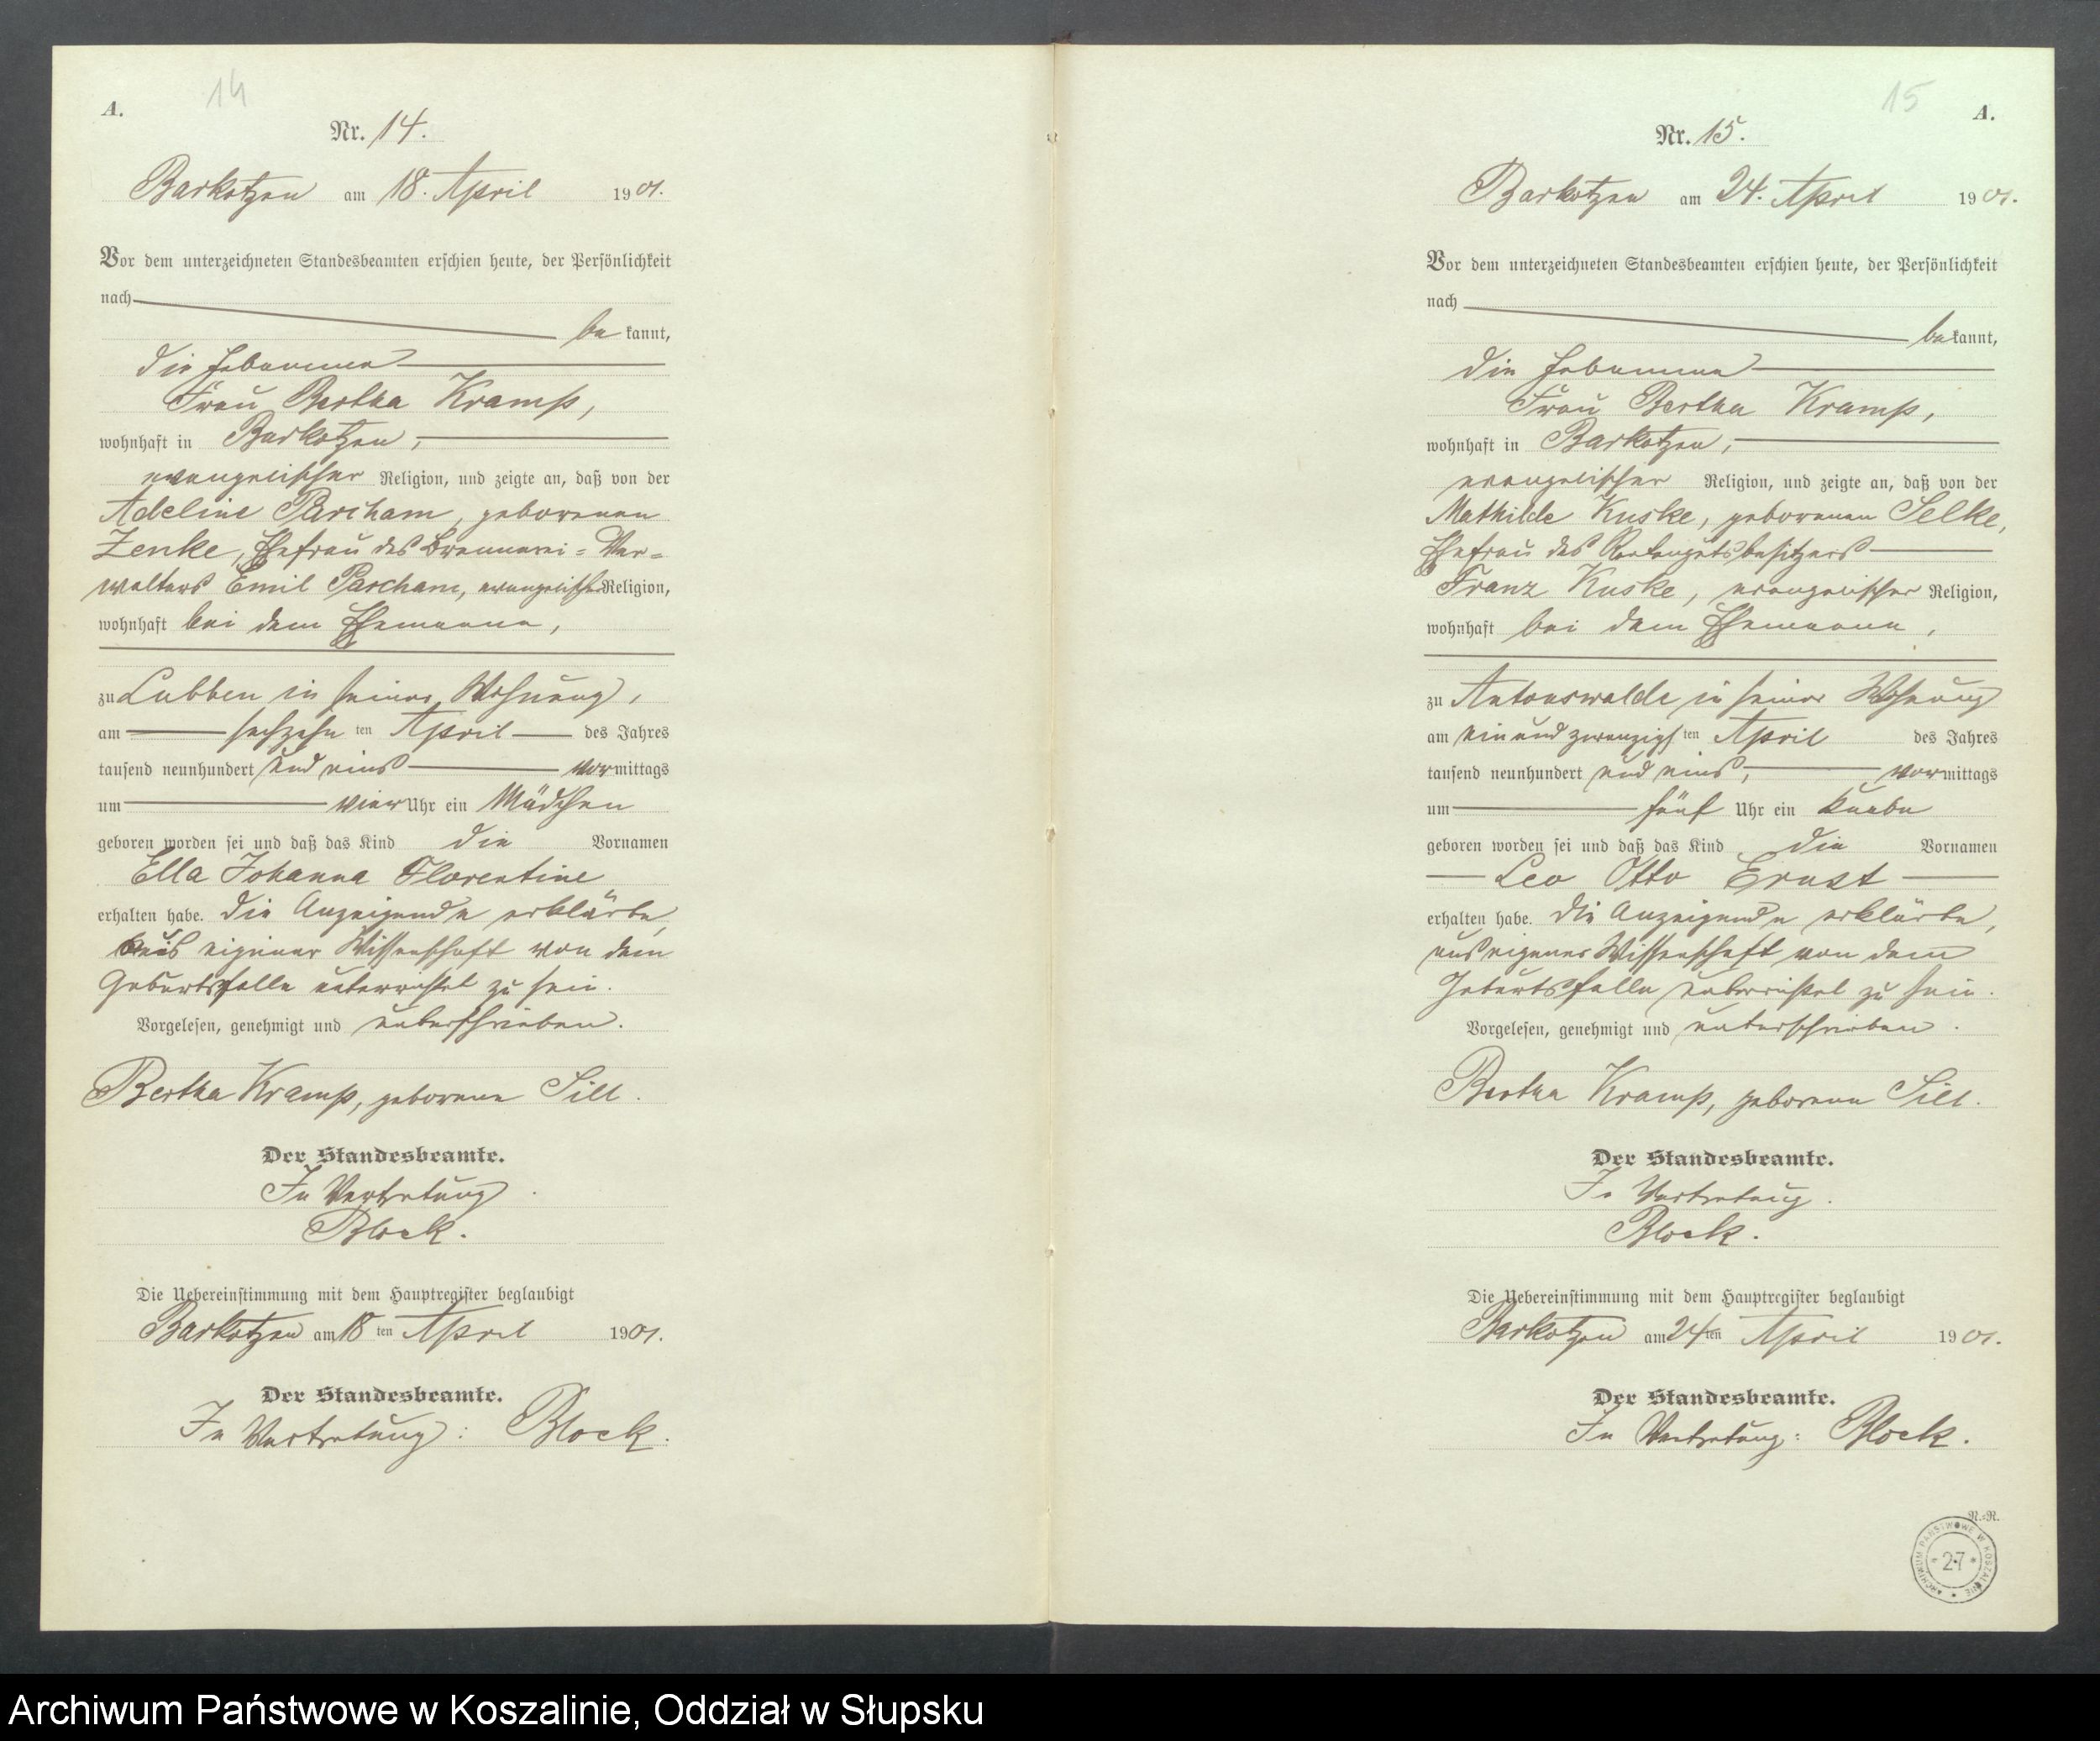 14
A.
Nr. 14.
Barkotzen am 18. April 1901.
Vor dem unterzeichneten Standesbeamten erschien heute, der Persönlichkeit
nach
be kannt,
die Hebamme
Frau Bertha Kramp,
wohnhaft in Barkotzen,
evangelischer Religion, und zeigte an, daß von der
Adeline Parcham, geborenen
Zenke, Ehefrau des Brennerei-Ver-
walters Emil Parcham, evangelischer Religion,
wohnhaft bei dem Ehemanne,
zu Lubben in seiner Wohnung,
am sechzehn ten April des Jahres
tausend neunhundert und eins vormittags
um vier Uhr ein Mädchen
geboren worden sei und daß das Kind die Vornamen
Ella Johanna Florentine
erhalten habe. Die Anzeigende erklärte,
aus eigener Wissenschaft von dem
Geburtsfalle unterrichtet zu sein.
Vorgelesen, genehmigt und unterschrieben.
Bertha Kramp, geborene Sill.
Der Standesbeamte.
In Vertretung
Block.
Die Uebereinstimmung mit dem Hauptregister beglaubigt
Barkotzen am 18 ten April 1901.
Der Standesbeamte.
In Vertretung: Block.
15
A.
Nr. 15.
Barkotzen am 24. April 1901.
Vor dem unterzeichneten Standesbeamten erschien heute, der Persönlichkeit
nach
be kannt,
die Hebamme
Frau Bertha Kramp,
wohnhaft in Barkotzen,
evangelischer Religion, und zeigte an, daß von der
Mathilde Kuske, geborenen Selke,
Ehefrau des Rentengutsbesitzers
Franz Kuske, evangelischer Religion,
wohnhaft bei dem Ehemanne,
zu Antonswalde in seiner Wohnung
am einundzwanzigs ten April des Jahres
tausend neunhundert und eins, vormittags
um fünf Uhr ein Knabe
geboren worden sei und daß das Kind die Vornamen
Leo Otto Ernst
erhalten habe. Die Anzeigende erklärte,
aus eigener Wissenschaft von dem
Geburtsfalle unterrichtet zu sein.
Vorgelesen, genehmigt und unterschrieben.
Bertha Kramp, geborene Sill.
Der Standesbeamte.
In Vertretung.
Block.
Die Uebereinstimmung mit dem Hauptregister beglaubigt
Barkotzen am 24 ten April 1901.
Der Standesbeamte.
In Vertretung: Block.
R.-R.
ARCHIWUM PAŃSTWOWE W KOSZALINIE
27
Archiwum Państwowe w Koszalinie, Oddział w Słupsku